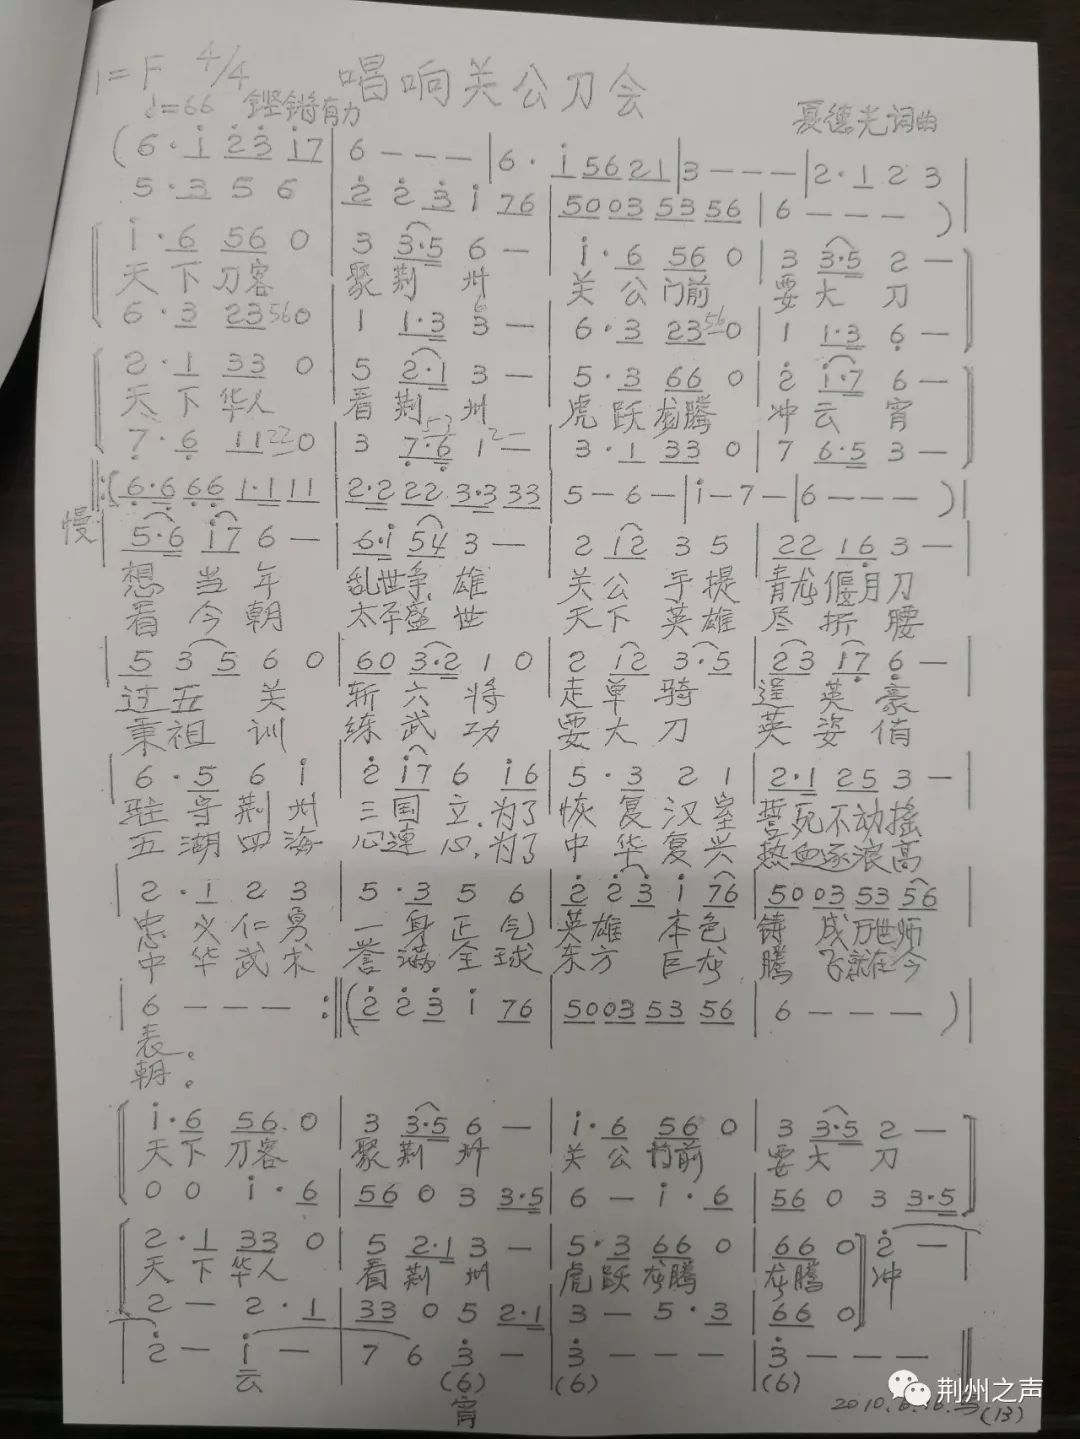 1=F 4/4 唱响关公刀会
♩=66 铿锵有力 夏德光词曲
(6·i 23 i7 | 6 - - - | 6· i 56 21 | 3 - - - | 2·1 2 3 |
5·3 5 6 | 2 2 3 i 76 | 50 03 53 56 | 6 - - - ) |
i·6 56 0 | 3 3·5 6 - | i·6 56 0 | 3 3·5 2 - |
天下刀客 聚荆州 关公门前 耍大刀
6·3 23 56 0 | 1 1·3 3 6 - | 6·3 23 56 0 | 1 1·3 6 - |
2·1 33 0 | 5 2·1 3 - | 5·3 66 0 | 2 i·7 6 - |
天下华人 看荆州 虎跃龙腾 冲云宵
7·6 11 22 0 | 3 7·6 53 1 2 - | 3·1 33 0 | 7 6·5 3 - |
‖:(6·6 66 1·1 11 | 2·2 22 3·3 33 | 5 - 6 - | i - 7 - | 6 - - - ) |
慢 5·6 i7 6 - | 6·i 54 3 - | 2 12 3 5 | 22 16 3 - |
想当年 乱世争雄 关公手提 青龙偃月刀
看今朝 太平盛世 天下英雄 尽折腰
5 3 5 6 0 | 60 3·2 1 0 | 2 12 3·5 | 23 17 6 - |
过五关 斩六将 走单骑 逞英豪
秉祖训 练武功 耍大刀 英姿俏
6·5 6 i | 2 i7 6 i6 | 5·3 2 1 | 2·1 25 3 - |
驻守荆州 三国立.为了 恢复汉室 誓死不动摇
五湖四海 心連心.为了 中华复兴 热血逐浪高
2·1 2 3 | 5·3 5 6 | 2 2 3 i 76 | 50 03 53 56 |
忠义仁勇 一身正气 英雄本色 铸成万世师
中华武术 誉满全球 东方巨龙 腾飞就在今
6 - - - :‖(2 2 3 i 76 | 50 03 53 56 | 6 - - - ) |
表。
朝。
i·6 56 0 | 3 3·5 6 - | i·6 56 0 | 3 3·5 2 - |
天下刀客 聚荆州 关公门前 耍大刀
0 0 i·6 | 56 0 3 3·5 | 6 - i·6 | 56 0 3 3·5 |
2·1 33 0 | 5 2·1 3 - | 5·3 66 0 | 66 0 2 - |
天下华人 看荆州 虎跃龙腾 龙腾 冲
2 - 2·1 | 33 0 5 2·1 | 3 - 5·3 | 66 0
2 - i - | 7 6 3 - | 3 - - - | 3 - - - ‖
云 (6) (6) (6)
宵
荆州之声
2010.6.16
(13)